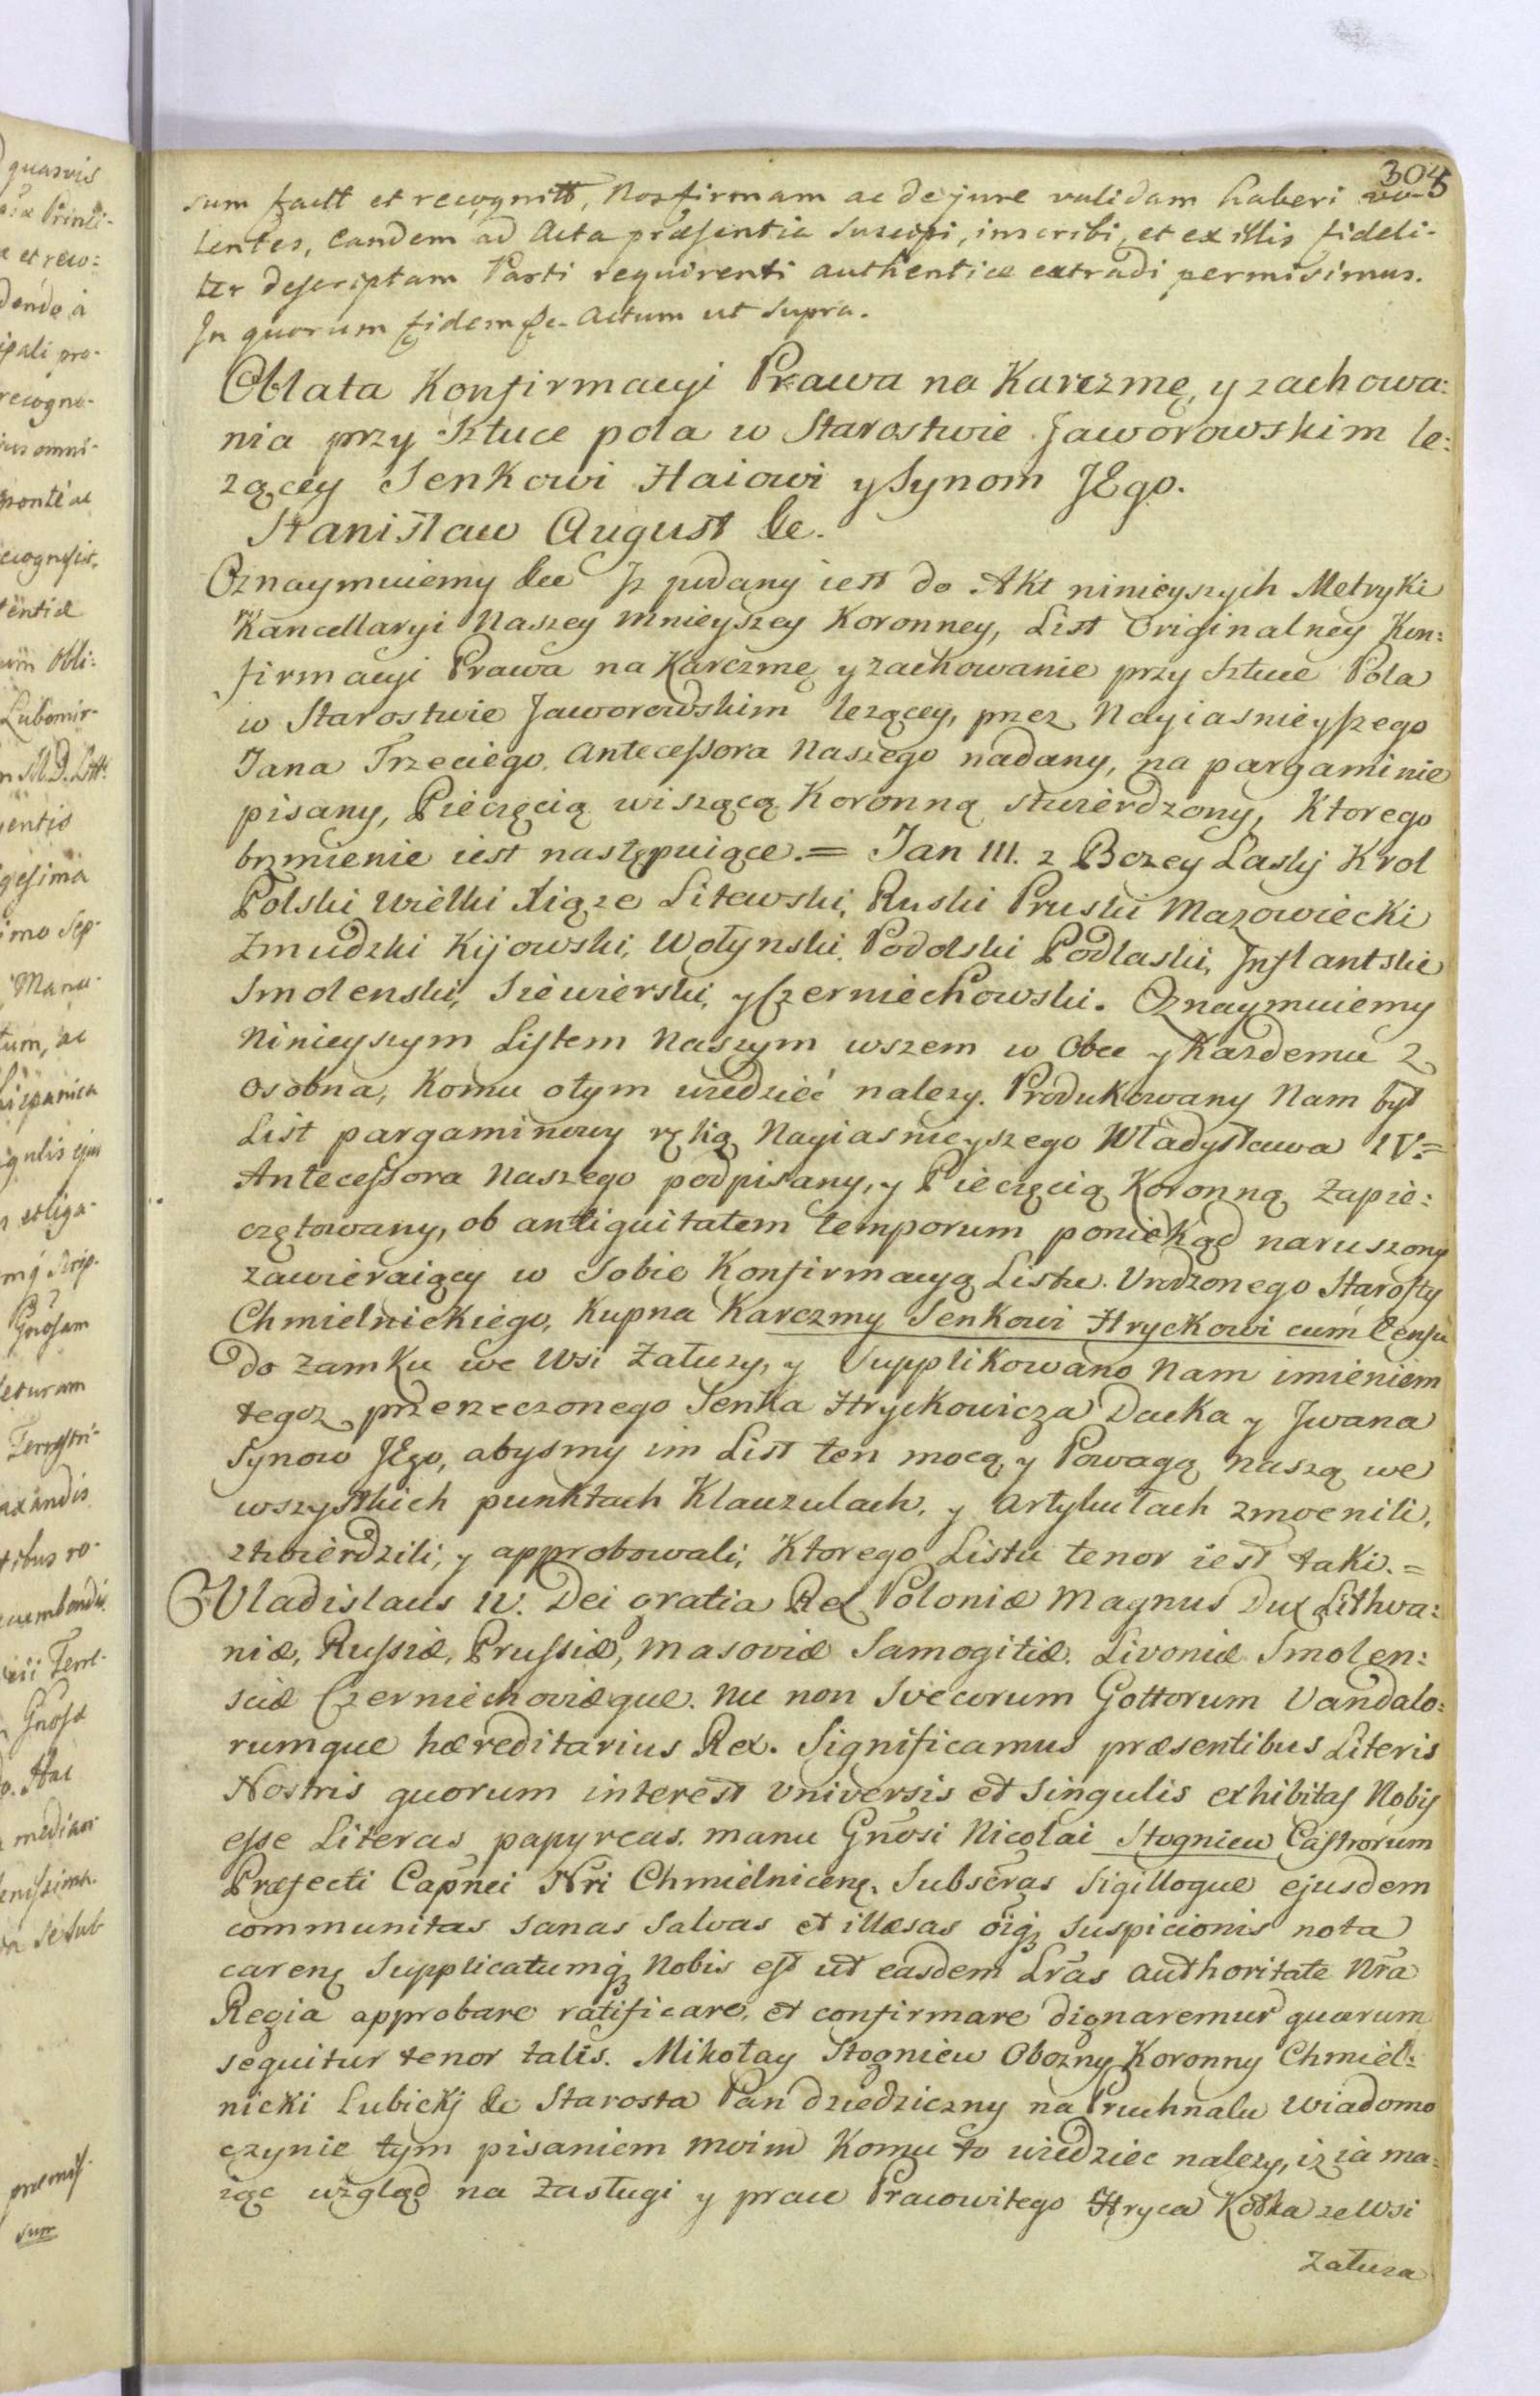 304
sum factt et recognitt, Nos firmam ac de jure validam haberi vo-
lentes, Eandem ad Acta præsentia suscipi, inscribi, et ex illis fideli-
ter descriptam Parti requirenti authentice extradi permisimus.
In quorum fidem &c. Actum ut supra.
Oblata Konfirmacyi Prawa na Karczmę, y zachowa:
nia przy Sztuce pola w Starostwie Jaworowskim le:
zącey Senkowi Haiowi y Synom JEgo.
Stanisław August &c.
Oznaymuiemy &cc Jz podany iest do Akt ninieyszych Metryki
Kancellaryi Naszey Mnieyszey Koronney, List Originalney Kon:
firmacyi Prawa na Karczmę y zachowanie przy Sztuce Pola
w Starostwie Jaworowskim lezącey, przez Nayiasnieyszego
Jana Trzeciego Antecessora Naszego nadany, na pargaminie
pisany, Pieczęcią wiszącą Koronną stwierdzony, Ktorego
brzmienie iest następuiące.= Jan III. z Bozey Lasky Krol
Polski Wielki Xiąze Litewski, Ruski Pruski Mazowiecki
Zmudzki Kijowski, Wołynski, Podolski Podlaski, Inflantski
Smolenski, Siewierski, y Czerniechowski. Oznaymuiemy
Ninieyszym Listem Naszym wszem w Obec y Kazdemu z
osobna, Komu otym wiedzieć nalezy. Produkowany Nam był
List pargaminowy ręką Nayiasnieyszego Władysława IV.=
Antecessora Naszego podpisany, y Pieczęcią Koronną Zapie:
czętowany, ob antiquitatem temporum poniekąd naruszony
zawieraiący w Sobie Konfirmacyą Listu Urodzonego Starosty
Chmielnickiego, Kupna Karczmy Senkowi Hryckowi cum Censu
Do Zamku we Wsi Załuzy, y Supplikowano Nam imieniem
tegoz przerzeczonego Senka Hryckowicza Dacka y Jwana
Synow JEgo, abysmy im List ten mocą y Powagą Naszą we
wszystkich punktach Klauzulach, y Artykułach zmocnili,
ztwierdzili, y approbowali, Ktorego Listu tenor iest taki.=
Vladislaus IV. Dei gratia Rex Poloniæ Magnus Dux Lithva:
niæ, Russiæ, Prussiæ, Masoviæ Samogitiæ. Livoniæ Smolen:
sciæ Czerniechoviæque. Nec non Svecorum Gottorum Vandalo:
rumque hæreditarius Rex. Significamus præsentibus Literis
Nostris quorum interest Universis et Singulis exhibitas Nobis
esse Literas papyreas manu Gnosi Nicolai Stogniew Castrorum
Præfecti Capnei Nri Chmielnicen. Subscras Sigilloque ejusdem
communitas sanas salvas et illæsas oiq suspicionis nota
caren Supplicatumq Nobis est ut easdem Lras authoritate Nra
Regia approbare ratificare, et confirmare dignaremur quarum
sequitur tenor talis. Mikołay Stogniew Obozny Koronny Chmiel:
nicki Lubicky &c Starosta Pan dziedziczny na Pruchnalu Wiadomo
czynie tym pisaniem moim Komu to wiedziec nalezy, iz ia ma:
iąc wzgląd na Zasługi y prace Pracowitego Hryca Kotka ze Wsi
Załuza